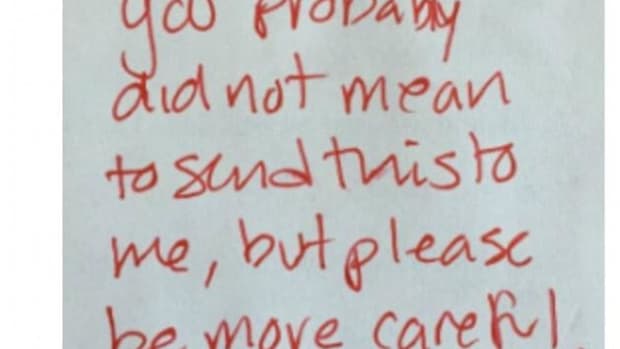 you Probably
did not mean
to send this to
me, but please
be more careful.